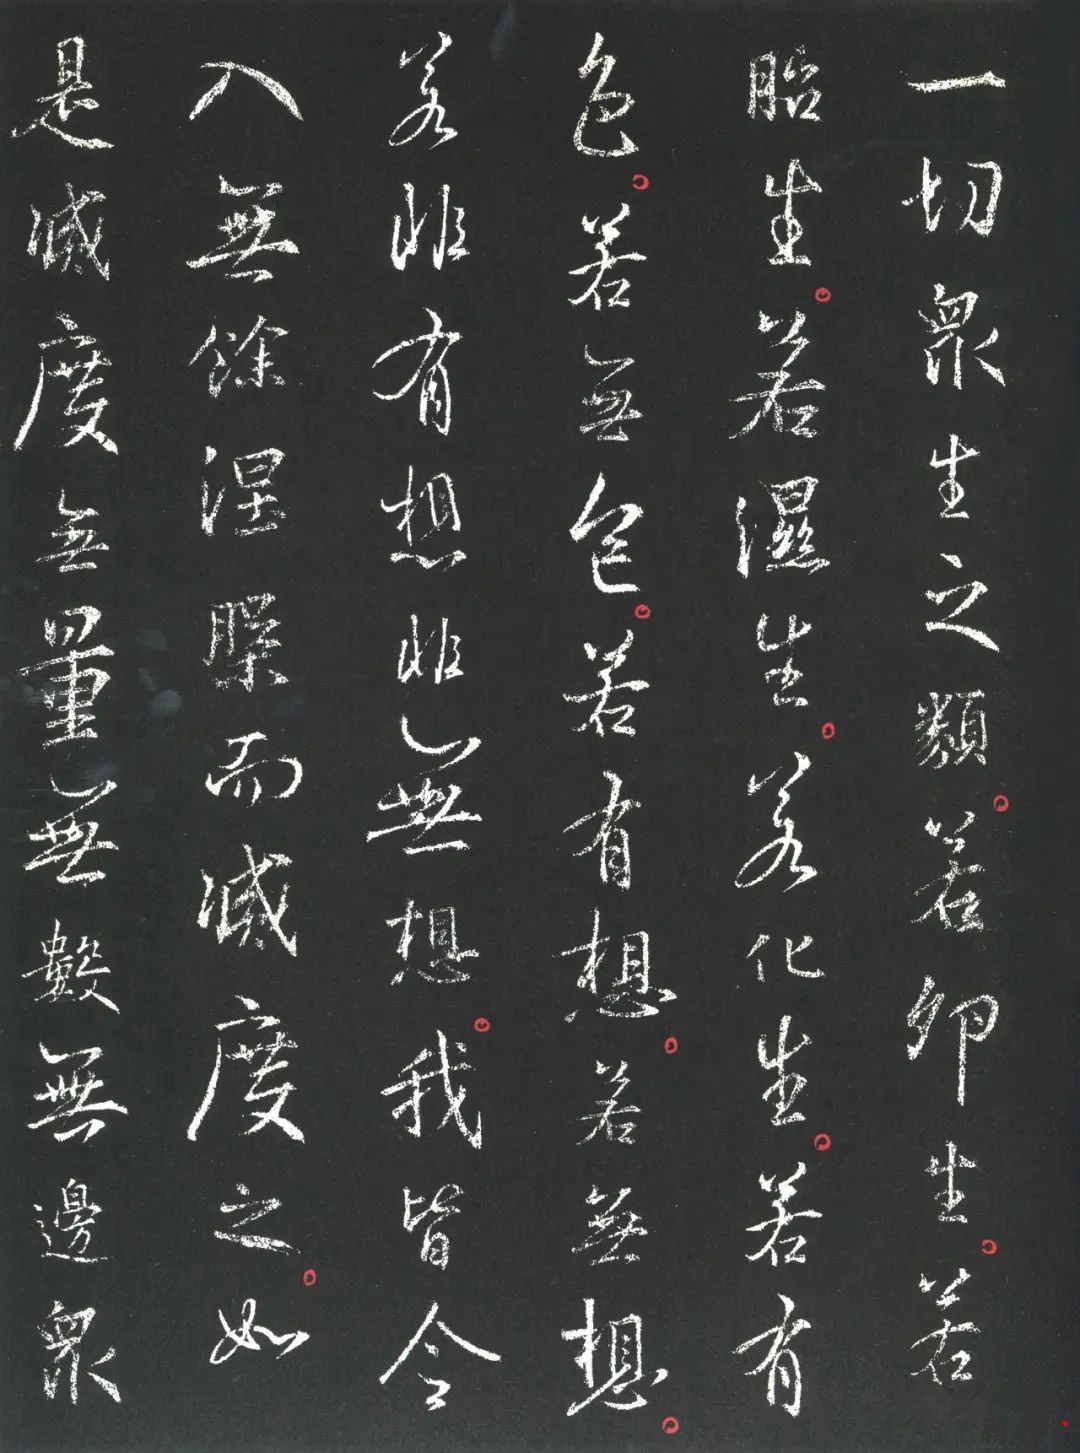 一切眾生之類。若卵生。若
胎生。若濕生。若化生。若有
色。若無色。若有想。若無想。
若非有想非無想。我皆令
入無餘涅槃而滅度之。如
是滅度無量無數無邊眾